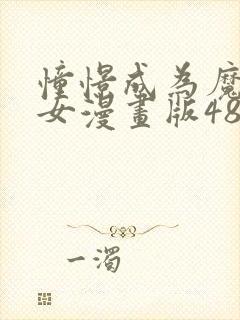 憧憬成為魔
女漫畫版48
一濁